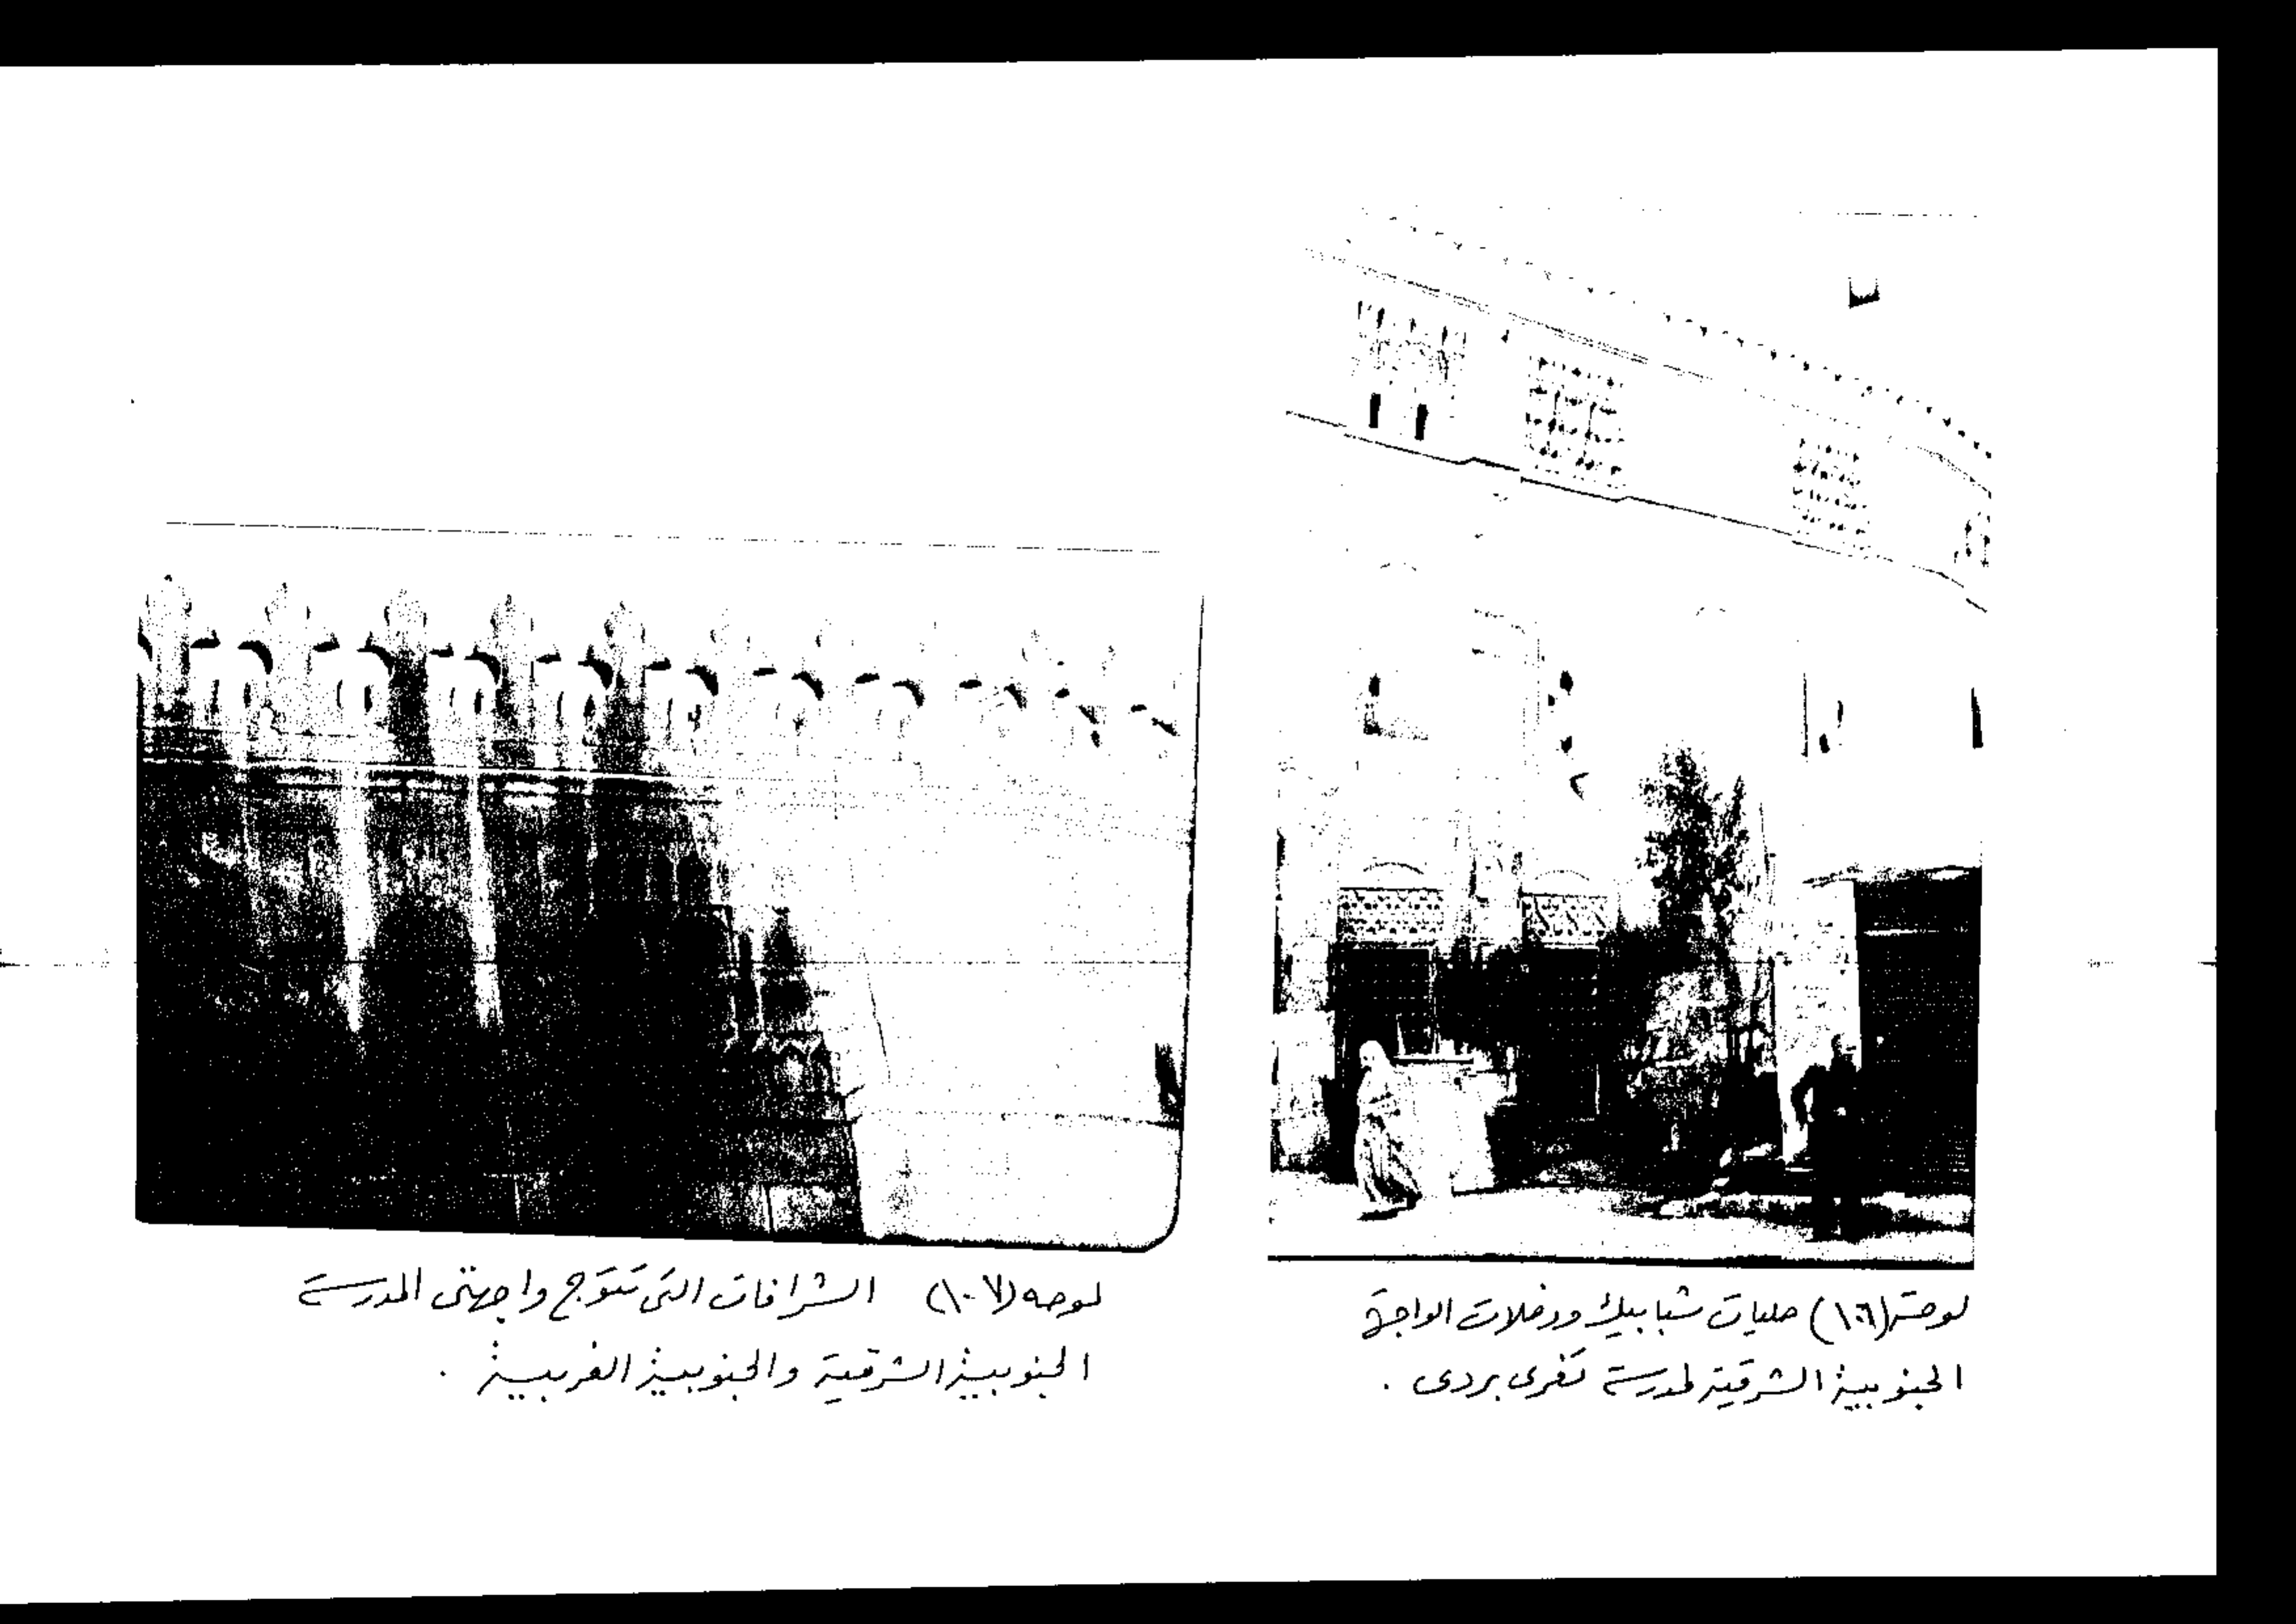 لوحة (١٠٦) حليات شبابيك ودخلات الواجهة
الجنوبية الشرقية لمدرسة تغرى بردى .
لوحه (١٠٧) الشرافات التى تتوج واجهتى المدرسة
الجنوبية الشرقية والجنوبية الغربية .